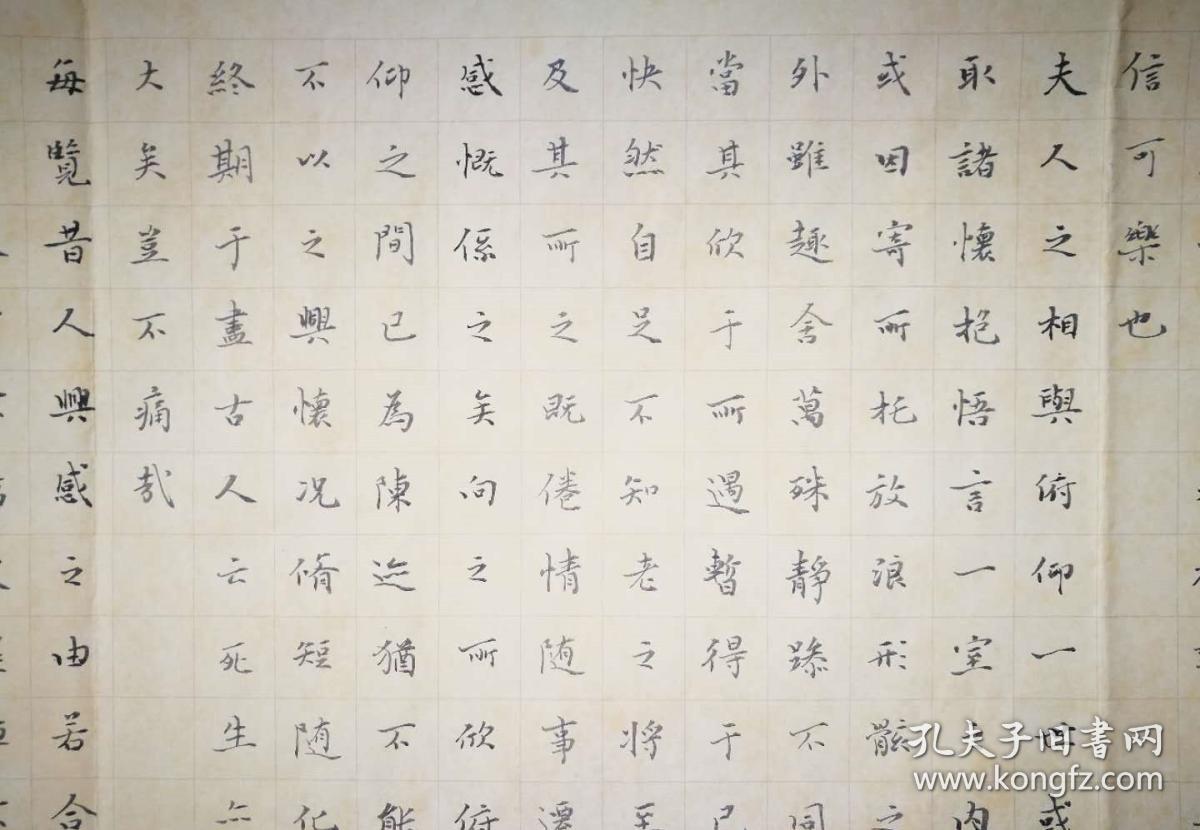 信可樂也
夫人之相與俯仰一世或
取諸懷抱悟言一室內
或因寄所托放浪形骸之
外雖趣舍萬殊靜躁不同
當其欣于所遇暫得于己
快然自足不知老之將至
及其所之既倦情随事遷
感慨係之矣向之所欣俯
仰之間已為陳迹猶不能
不以之興懷况脩短随化
終期于盡古人云死生亦
大矣豈不痛哉
每覽昔人興感之由若合
孔夫子旧書网
www.kongfz.com